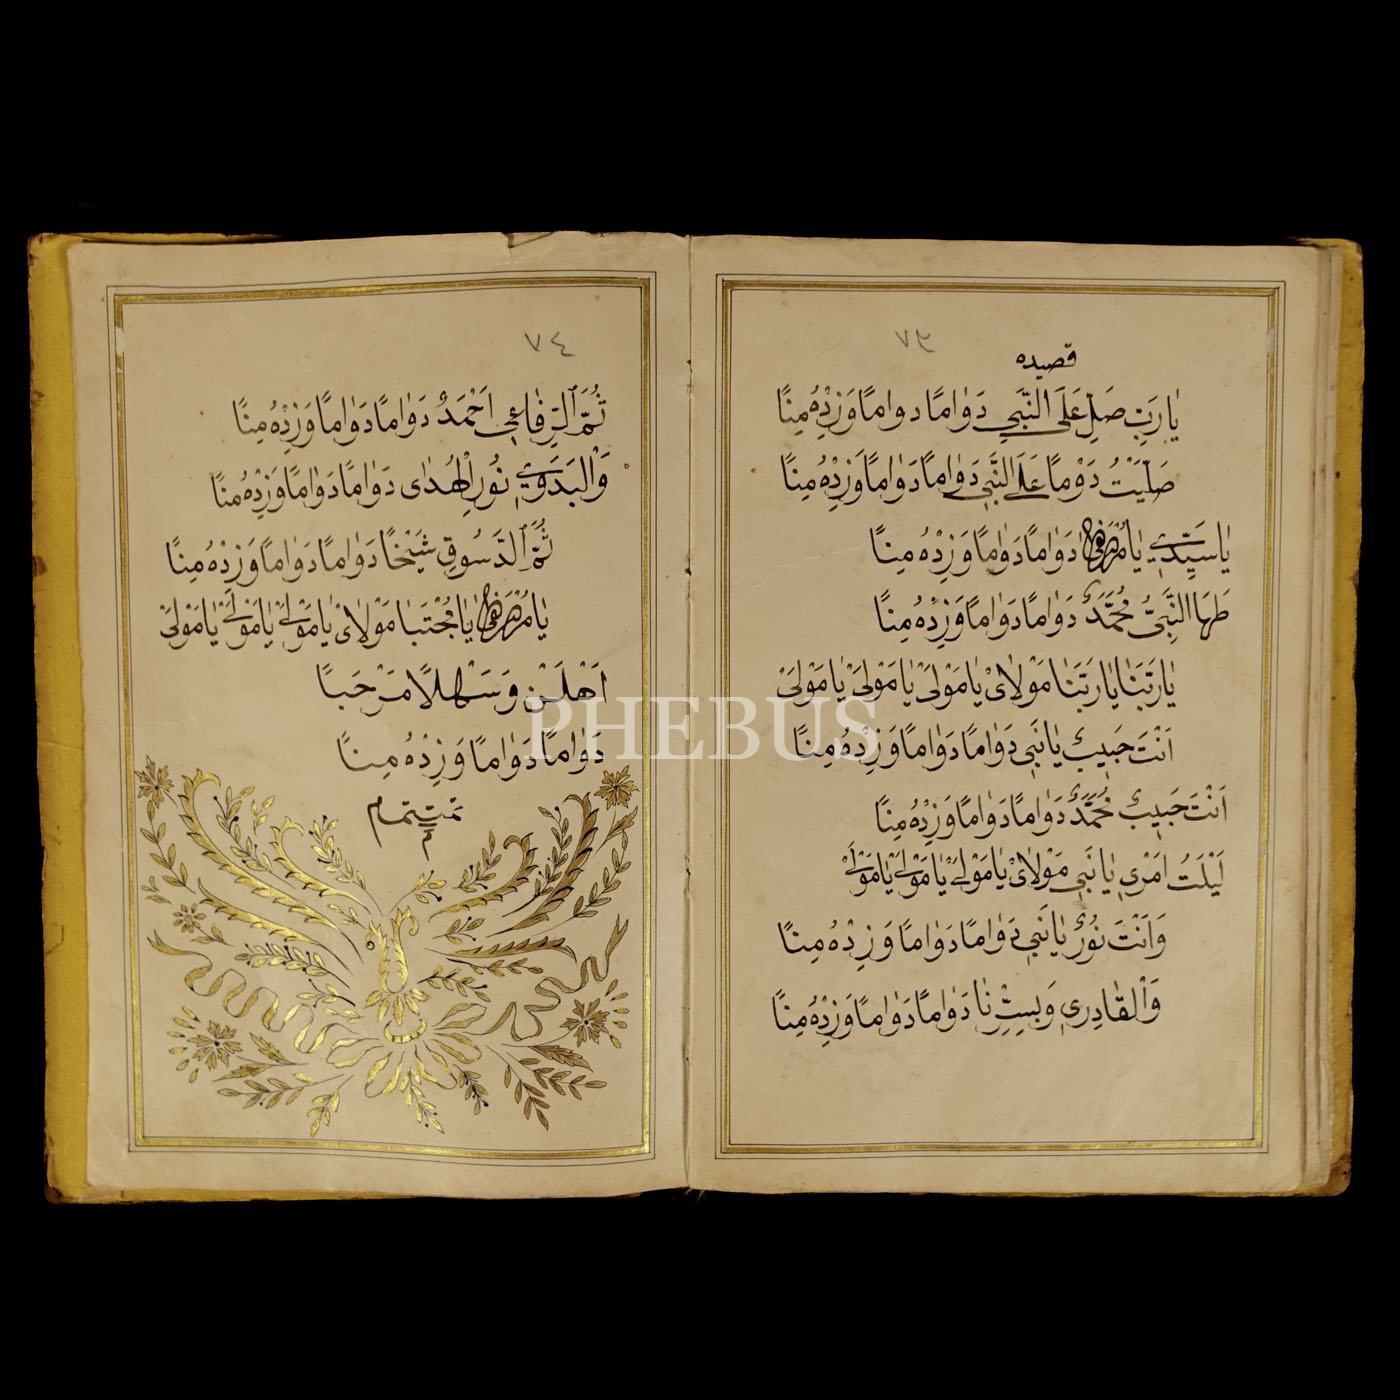 ٧٣
قصيده
يَا رَبِّ صَلِّ عَلَى النَّبِي دَوَامًا دوامًا وَزِدْهُ مِنَّا
صَلَّيْتُ دَوْمًا عَلَى النَّبِي دَوَامًا دَوَامًا وَزِدْهُ مِنَّا
يَا سَيِّدِي يَا دَوَامًا دَوَامًا وَزِدْهُ مِنَّا
طَهَا النَّبِيُّ مُحَمَّدٌ دَوَامًا دَوَامًا وَزِدْهُ مِنَّا
يَا رَبَّنَا يَا رَبَّنَا مَوْلَايْ يَا مَوْلَيْ يَا مَوْلَيْ يَا مَوْلَيْ
اَنْتَ حَبِيبٌ يَا نَبِي دَوَامًا دَوَامًا وَزِدْهُ مِنَّا
اَنْتَ حَبِيبٌ مُحَمَّدٌ دَوَامًا دَوَامًا وَزِدْهُ مِنَّا
لَيْلَتُ امْرِي يَا نَبِي مَوْلَايْ يَا مَوْلَيْ يَا مَوْلَيْ يَا مَوْلَيْ
وَاَنْتَ نُورٌ يَا نَبِي دَوَامًا دَوَامًا وَزِدْهُ مِنَّا
وَالْقَادِرِي دَوَامًا دَوَامًا وَزِدْهُ مِنَّا
٧٤
ثُمَّ الرِّفَاعِي اَحْمَدٌ دَوَامًا دَوَامًا وَزِدْهُ مِنَّا
وَالْبَدَوِي نُورِ الْهُدَى دَوَامًا دَوَامًا وَزِدْهُ مِنَّا
ثُمَّ الدَّسُوقِ شَيْخًا دَوَامًا دَوَامًا وَزِدْهُ مِنَّا
يَا يَا مُجْتَبَا مَوْلَايْ يَا مَوْلَيْ يَا مَوْلَيْ يَا مَوْلَيْ
اَهْلَنْ وَسَهْلًا مَرْحَبًا
دَوَامًا دَوَامًا وَزِدْهُ مِنَّا
تمت تمام
م
PHEBUS